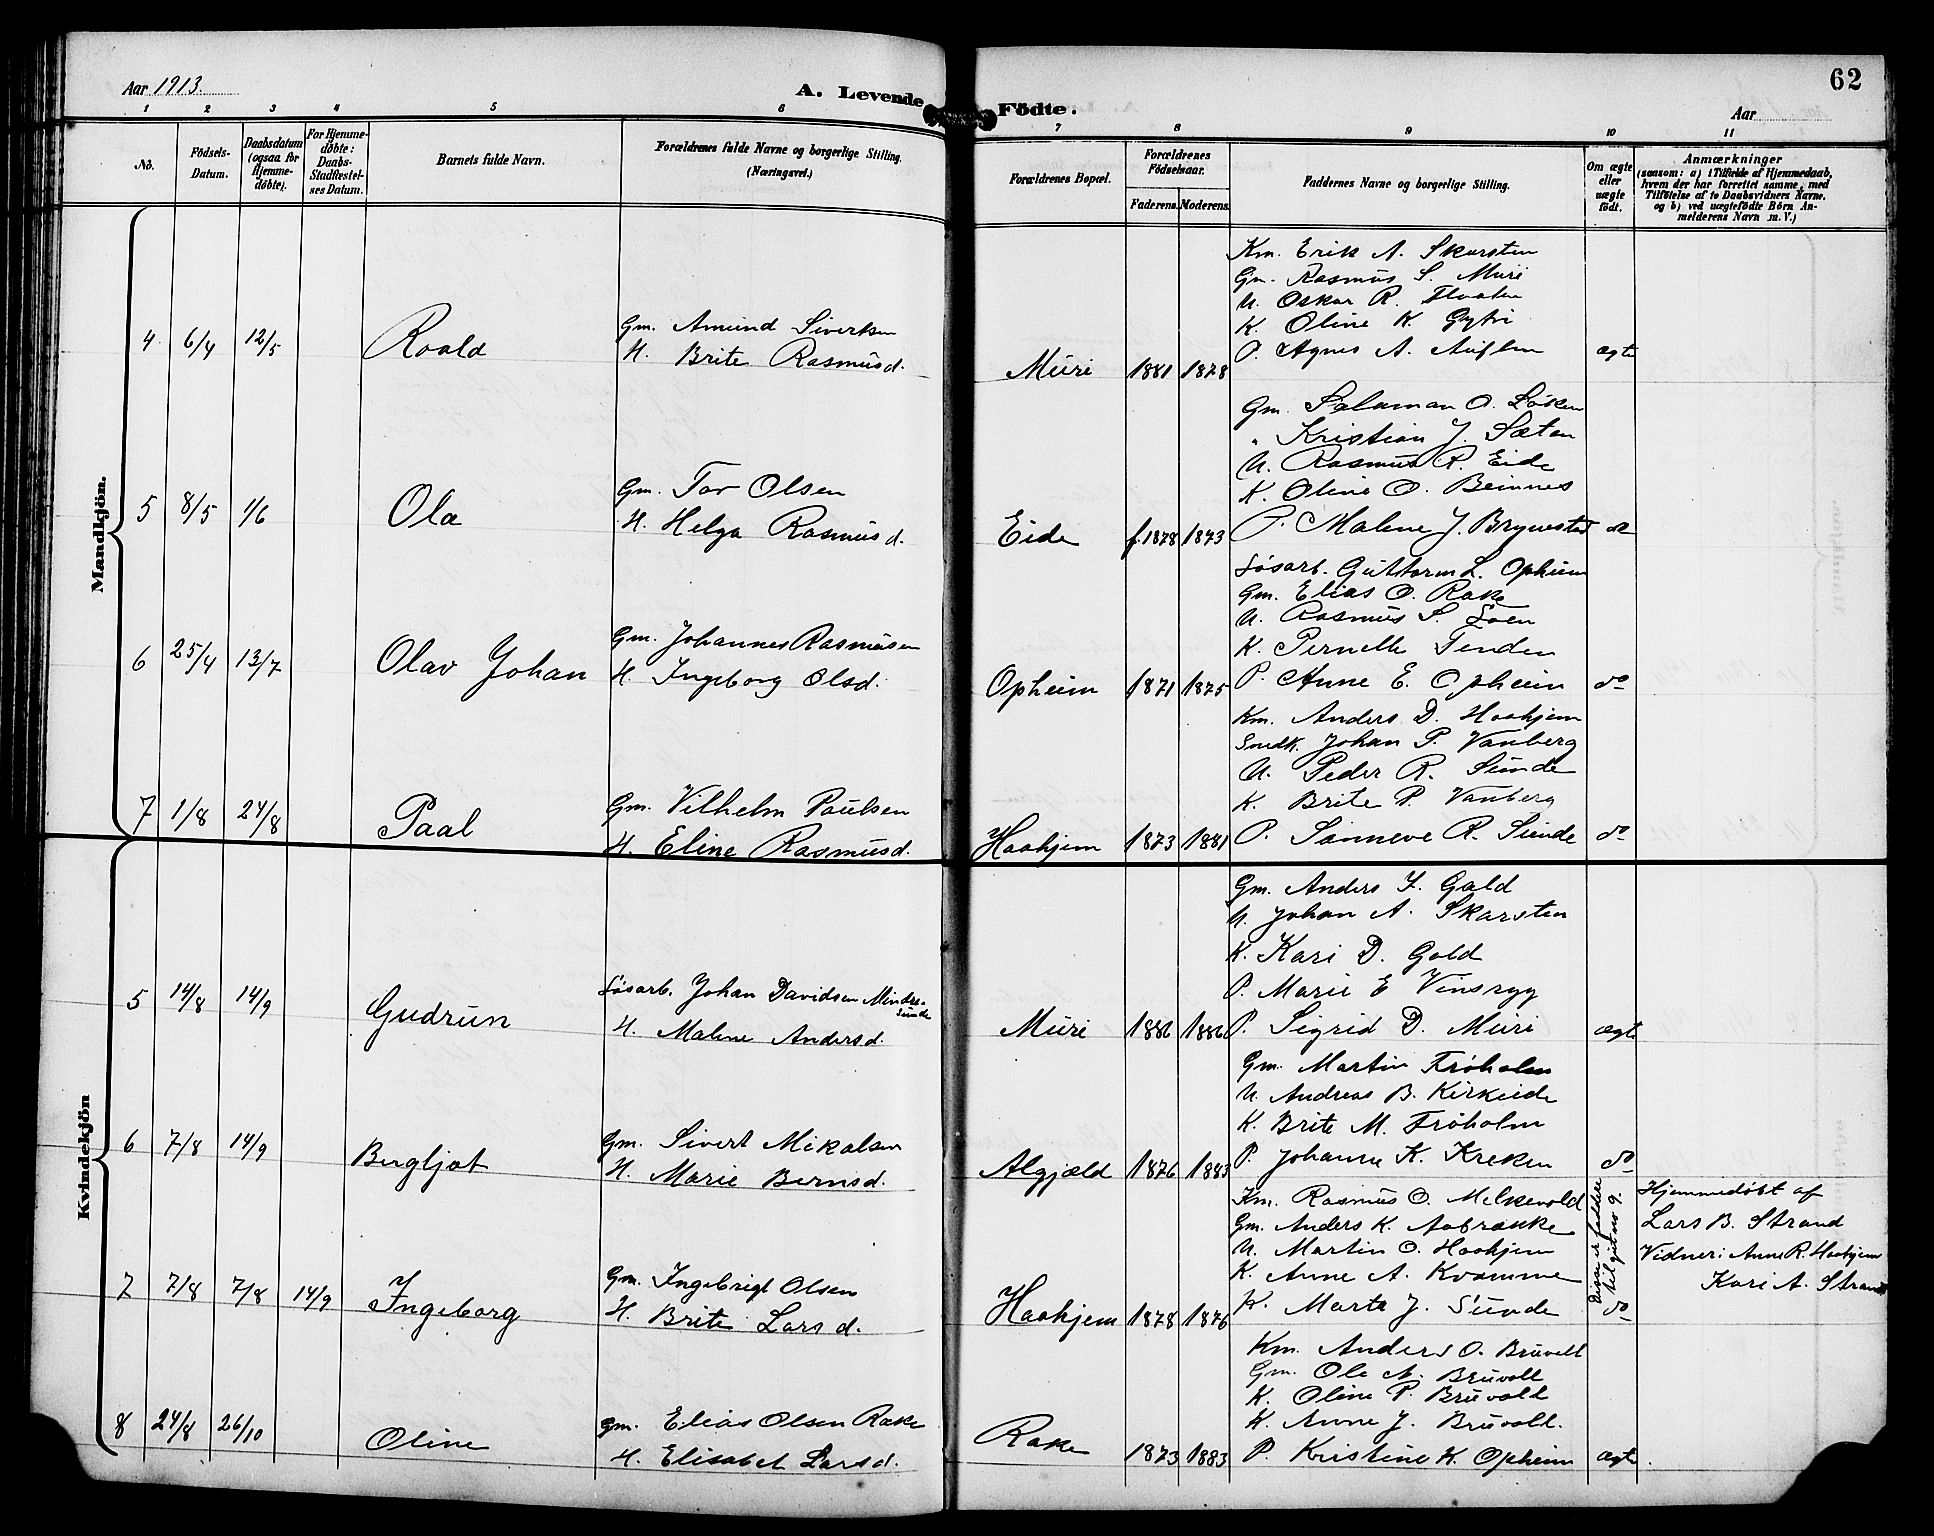 Aar 1913.
A. Levende Födte.
62
Aar
1 2 3 4 5 6 7 8 9 10 11
No.
Födsels-Datum.
Daabsdatum (ogsaa for Hjemme-döbte).
For Hjemme-döbte: Daabs-Stadfæstel-ses Datum.
Barnets fulde Navn.
Forældrenes fulde Navne og borgerlige Stilling. (Næringsvei.)
Forældrenes Bopæl.
Forældrenes Födselsaar.
Faderens. Moderens.
Faddernes Navne og borgerlige Stilling.
Om ægte eller uægte födt.
Anmærkninger
(saasom: a) i Tilfælde af Hjemmedaab,
hvem der har forrettet samme, med
Tilföielse af to Daabsvidners Navne.
og b) ved uægtefödte Börn An-
melderens Navn m. V.)
Mandkjön.
4 6/4 12/5 Roald
Gm. Amund Sivertsen
H. Brite Rasmusd.
Muri 1881 1878
Km. Erik A. Skarsten
Gm. Rasmus S. Muri
U. Oskar R. Floaten
K. Oline K. Gytri
P. Agnes A. Auflem
ægte
5 8/5 1/6 Ola
Gm. Tor Olsen
H. Helga Rasmusd.
Eide f. 1878 1873
Gm. Salamon O. Löken
" Kristian J. Sæten
U. Rasmus R. Eide
K. Oline O. Beinnes
P. Malene J. Brynestad
do
6 25/4 13/7 Olav Johan
Gm. Johannes Rasmusen
H. Ingeborg Olsd.
Opheim 1871 1875
Løsarb. Guttorm L. Opheim
Gm. Elias O. Rake
U. Rasmus S. Loen
K. Pernelle Tenden
P. Anne E. Opheim
do
7 1/8 24/8 Paal
Gm. Vilhelm Paulsen
H. Eline Rasmusd.
Haahjem 1873 1881
Km. Anders D. Haahjem
Snedk. Johan P. Vanberg
U. Peder R. Sunde
K. Brite P. Vanberg
P. Sanneve R. Sunde
do
Kvindekjön
5 14/8 14/9 Gudrun
Løsarb. Johan Davidsen Mindre-
sunde
H. Malene Andersd.
Muri 1886 1886
Gm. Anders I. Gald
U. Johan A. Skarsten
K. Kari D. Gald
P. Marie E Vinsryg
P. Sigrid D. Muri
ægte
6 7/8 14/9 Bergljot
Gm. Sivert Mikalsen
H. Marie Bernsd.
Algjæld 1876 1883
Gm. Martin Frøholm
U. Andreas B. Kirkeide
K. Brite M. Frøholm
P. Johanne K. Kreken
do
7 7/8 7/8 14/9 Ingeborg
Gm. Ingebrigt Olsen
H. Brite Larsd.
Haahjem 1878 1876
Km. Rasmus O. Melkevold
Gm. Anders K. Aabrække
U. Martin O. Haahjem
K. Anne A. Kvamme
K. Marte J. Sunde
Disse er faddere
til gut no 9.
do
Hjemmedøbt af
Lars B. Strand
Vidner: Anne R. Haahjem
Kari A. Strand
8 24/8 26/10 Oline
Gm. Elias Olsen Rake
H. Elisabet Larsd.
Rake 1873 1883
Km. Anders O. Bruvoll
Gm. Ole A. Bruvoll
K. Oline P. Bruvold
K. Anne J. Bruvoll.
P. Kristine K. Opheim
ægte.